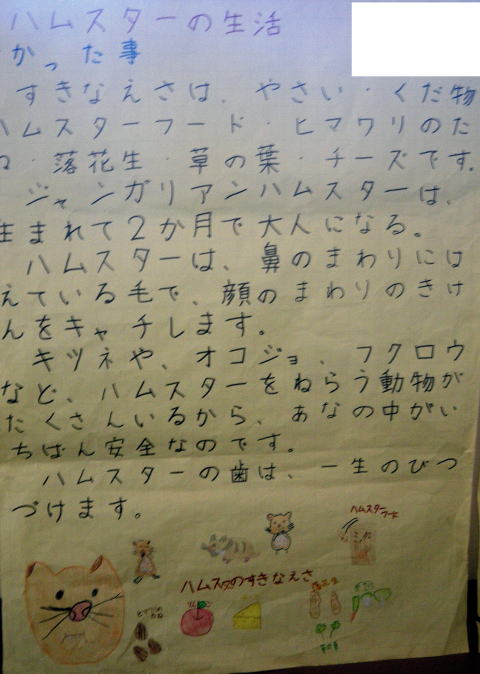 ハムスターの生活
かった事
すきなえさは、やさい・くだ物
ハムスターフード・ヒマワリのた
ね・落花生・草の葉・チーズです。
ジャンガリアンハムスターは、
生まれて2か月で大人になる。
ハムスターは、鼻のまわりには
えている毛で、顔のまわりのきけ
んをキャチします。
キツネや、オコジョ、フクロウ
など、ハムスターをねらう動物が
たくさんいるから、あなの中がい
ちばん安全なのです。
ハムスターの歯は、一生のびつ
づけます。
ハムスターフード
ハムスターのすきなえさ
落花生